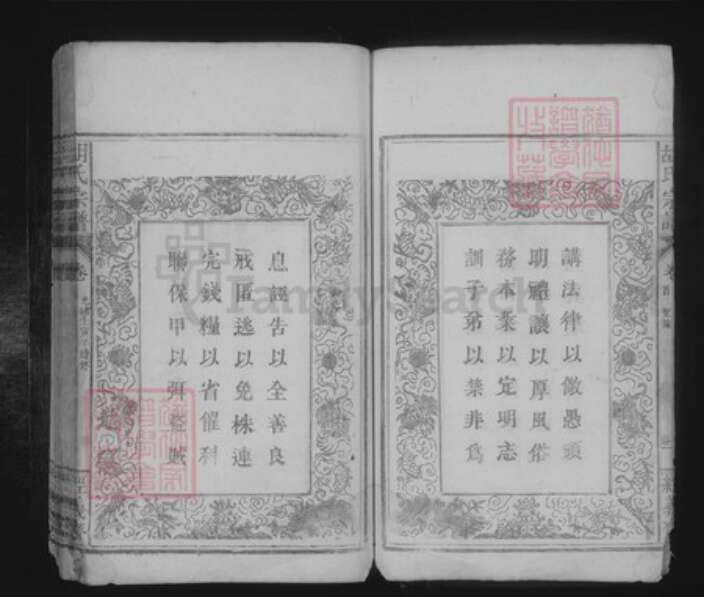 胡氏宗譜
講法律以儆愚頑
明禮讓以厚風俗
務本業以定明志
訓子弟以禁非爲
息誣告以全善良
戒匿逃以免株連
完錢糧以省催科
聯保甲以弭盜賊
胡氏宗譜
卷
FamilySearch